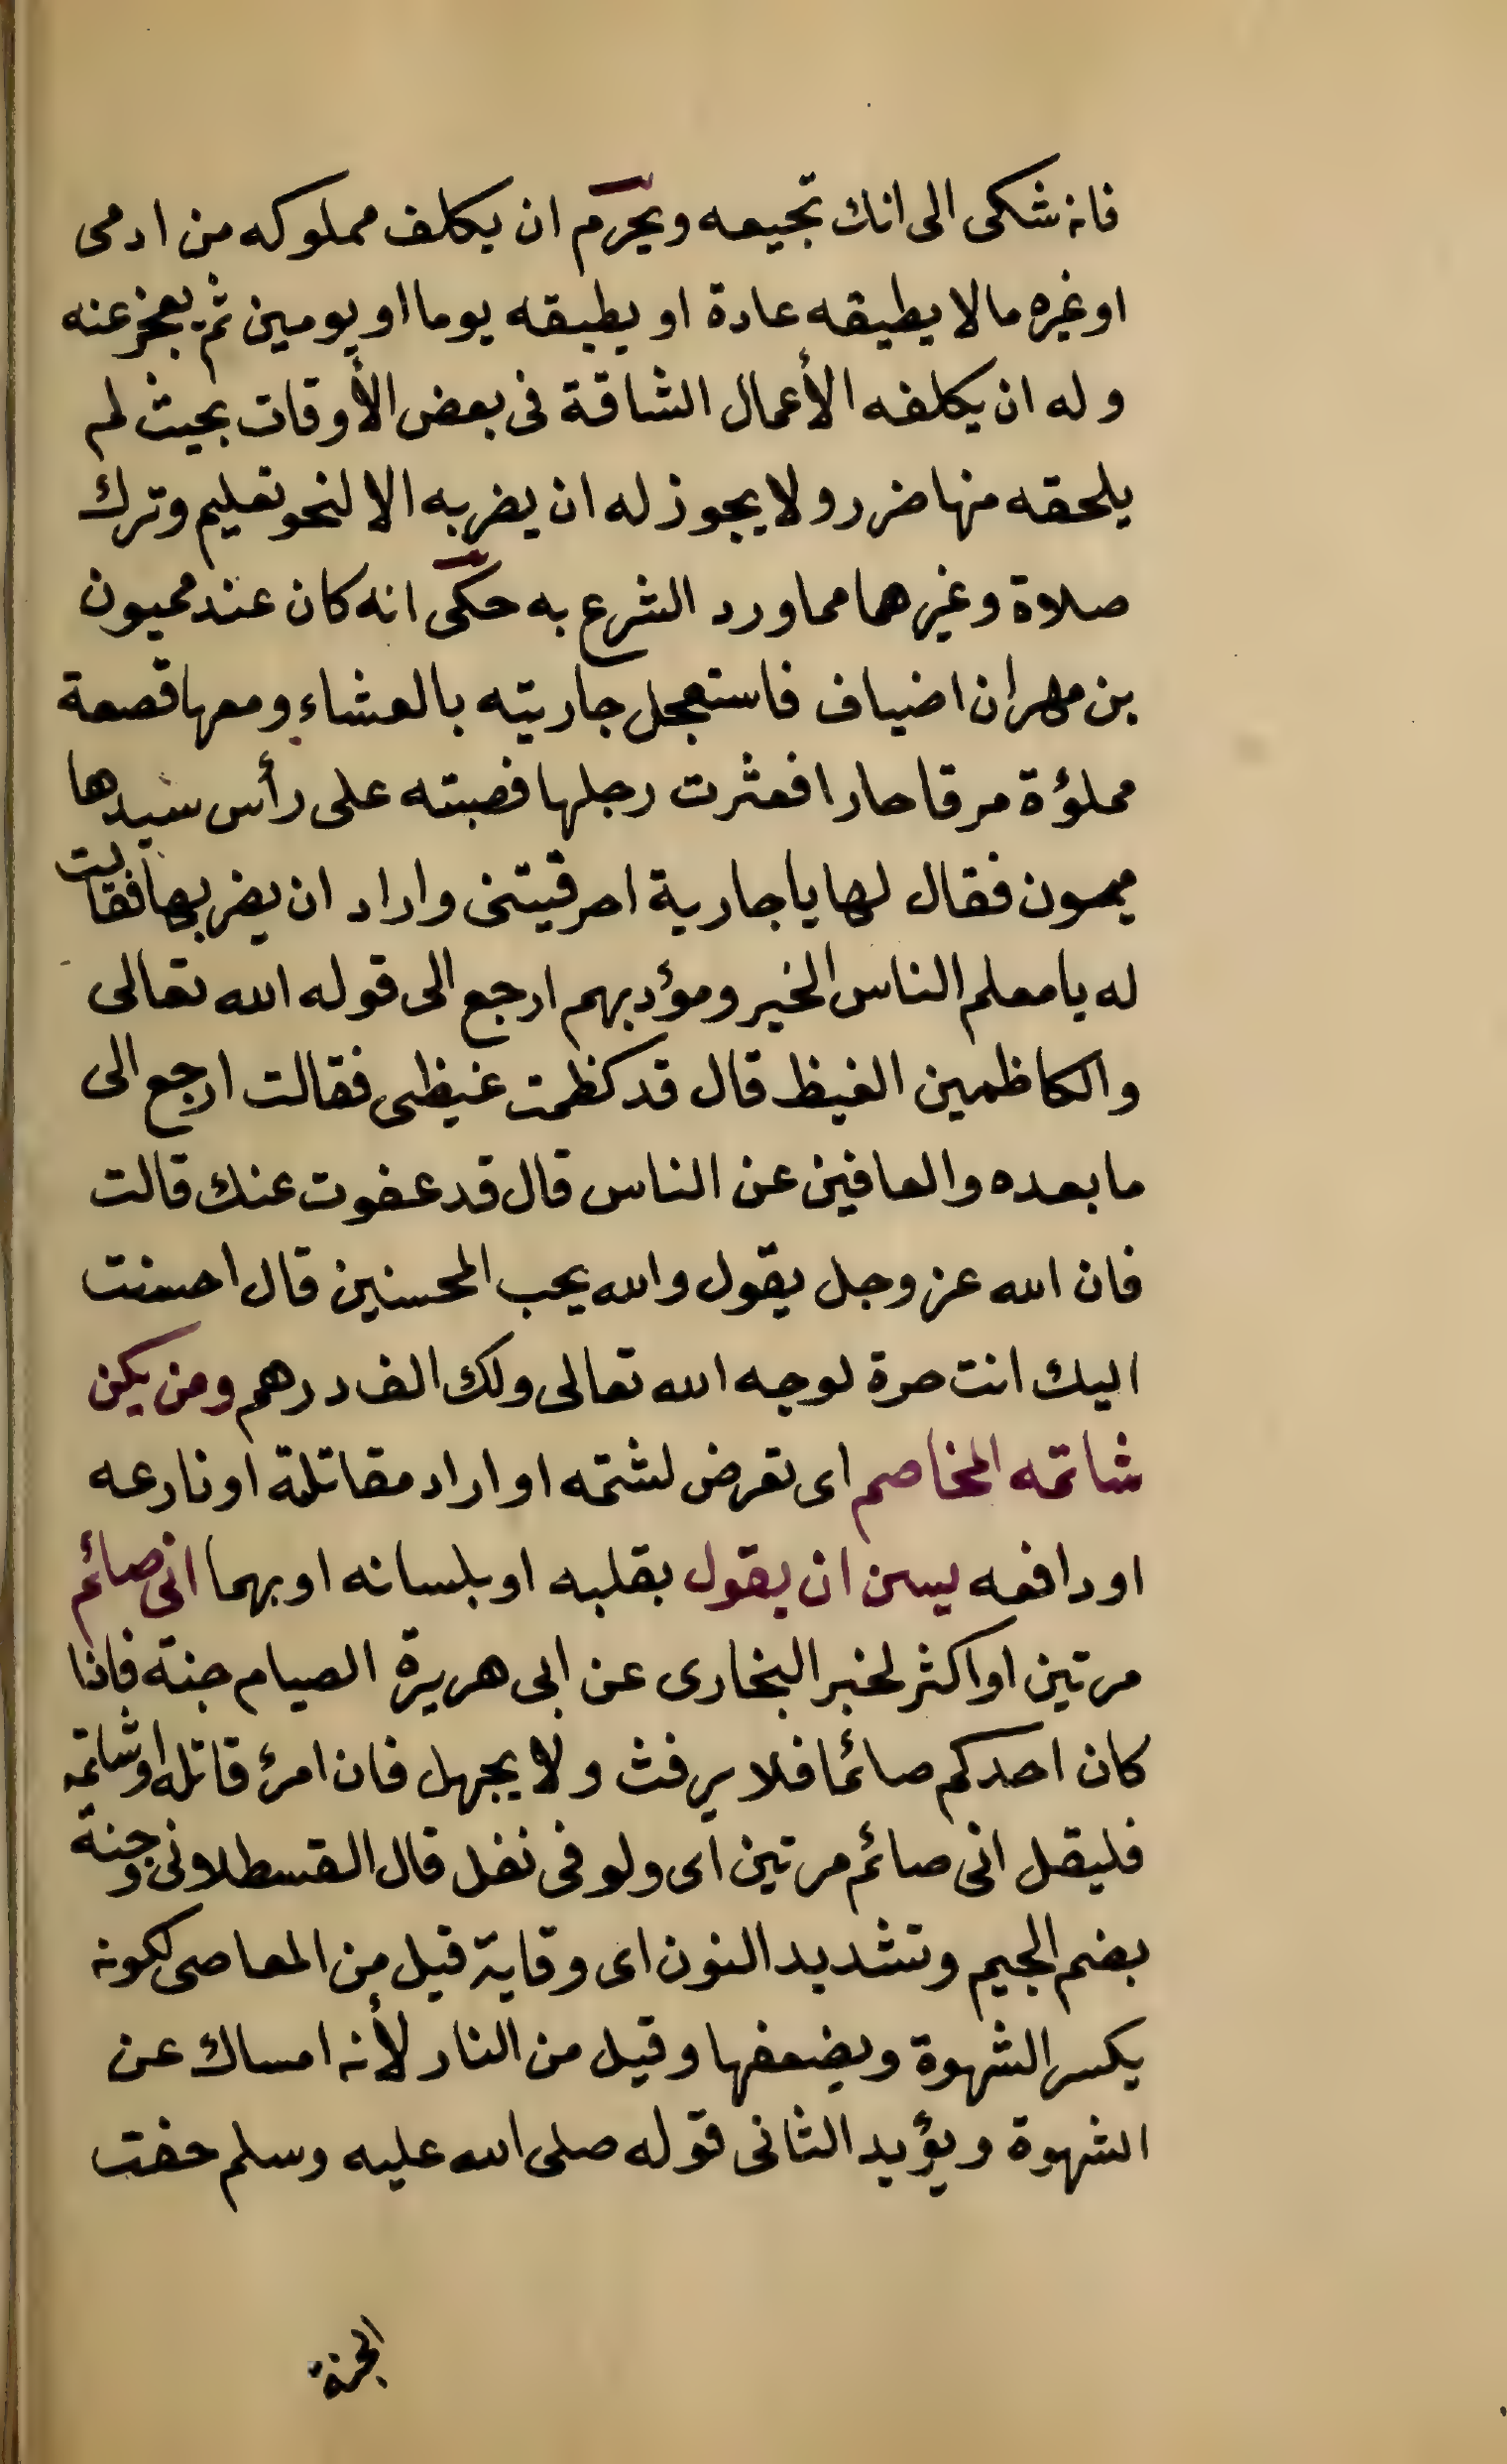 فانه شكى الى انك تجيعه ويحرم ان يكلف مملوكه من ادمى
او غيره ما لا يطيقه عادة او يطيقه يوما او يومين ثم يعجز عنه
وله ان يكلفه الأعمال الشاقة فى بعض الأوقات بحيث لم
يلحقه منها ضرر ولا يجوز له ان يضربه الا لنحو تعليم وترك
صلاة وغيرهما مما ورد الشرع به حكى انه كان عند ميمون
بن مهران اضياف فاستعجل جاريته بالعشاء ومعها قصعة
مملؤة مرقا حارا فعثرت رجلها فصبته على رأس سيدها
ميمون فقال لها يا جارية احرقيتنى واراد ان يضربها فقالت
له يا معلم الناس الخير ومؤدبهم ارجع الى قوله الله تعالى
والكاظمين الغيظ قال قد كظمت غيظى فقالت ارجع الى
ما بعده والعافين عن الناس قال قد عفوت عنك قالت
فان الله عز وجل يقول والله يحب المحسنين قال احسنت
اليك انت حرة لوجه الله تعالى ولك الف درهم ومن يكن
شاتمه المخاصم اى تعرض لشتمه او اراد مقاتلة او نازعه
او دافعه يسن ان يقول بقلبه او بلسانه او بهما انى صائم
مرتين او اكثر لخبر البخارى عن ابى هريرة الصيام جنة فاذا
كان احدكم صائما فلا يرفث ولا يجهل فان امرئ قاتله او شاتمه
فليقل انى صائم مرتين اى ولو فى نفل قال القسطلانى وجنة
بضم الجيم وتشديد النون اى وقاية قيل من المعاصى لكونه
يكسر الشهوة ويضعفها وقيل من النار لأنه امساك عن
الشهوة ويؤيد الثانى قوله صلى الله عليه وسلم حفت
الجنة